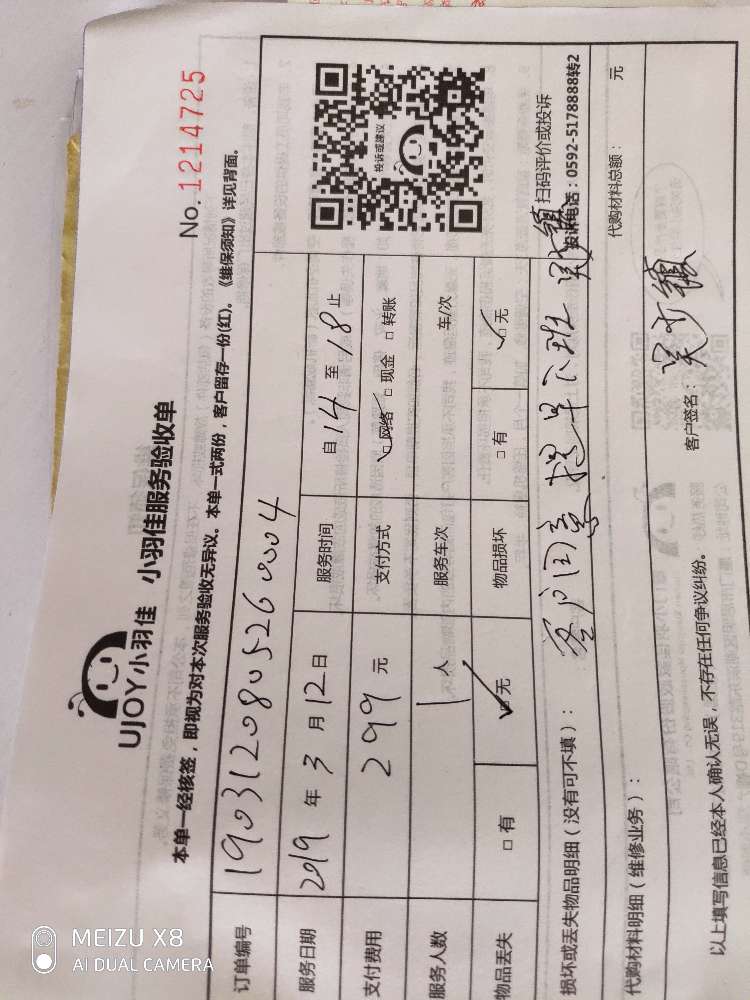 UJOY小羽佳 小羽佳服务验收单
No.1214725
本单一经核签，即视为对本次服务验收无异议。本单一式两份，客户留存一份(红)。《维保须知》详见背面。
订单编号 1903120805260004
服务日期 2019 年 3 月 12 日 服务时间 自 14 至 18 止
支付费用 299 元 支付方式 ☑网络 □现金 □转账
服务人数 1 人 服务车次 车/次
物品丢失 □有 ☑无 物品损坏 □有 ☑无
投诉或建议
扫码评价或投诉
投诉电话：0592-5178888转2
损坏或丢失物品明细（没有可不填）： 客户同意提早下班
代购材料明细（维修业务）： 代购材料总额： 元
以上填写信息已经本人确认无误，不存在任何争议纠纷。 客户签名：
MEIZU X8
AI DUAL CAMERA